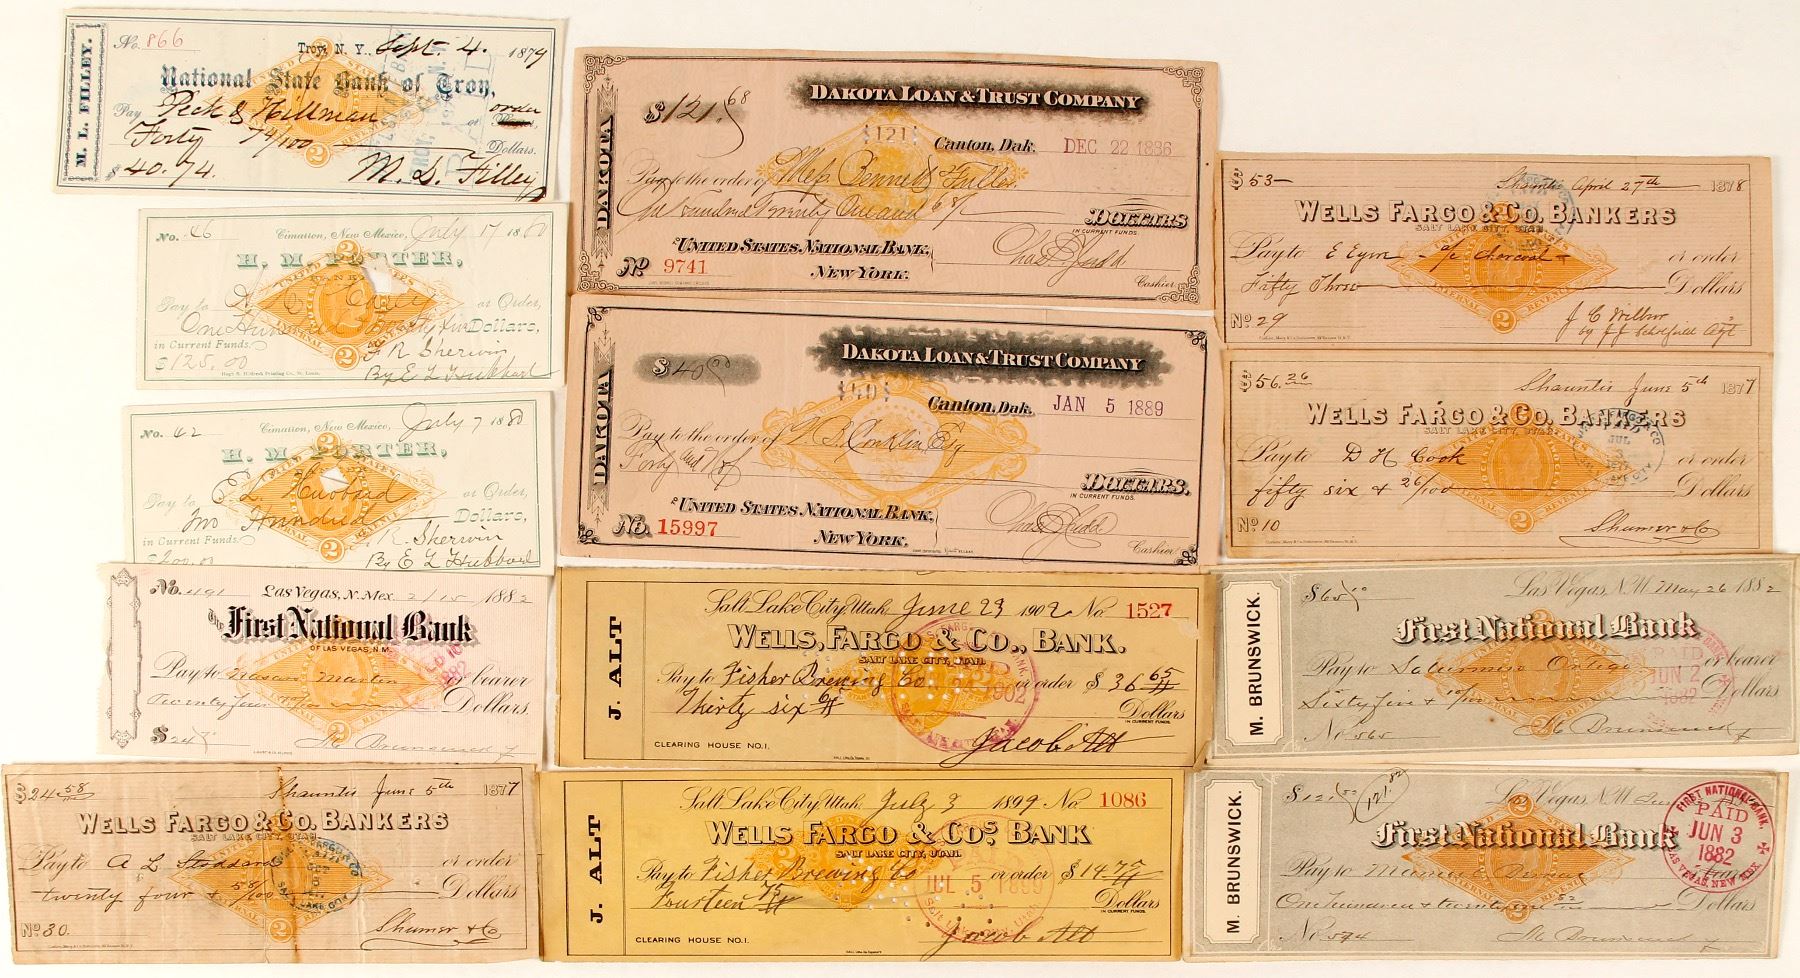 M. L. FILLEY.
No. 866
Troy, N. Y., Sept. 4. 1879
National State Bank of Troy,
Pay Peck & Hillman or order
Forty 74/100 Dollars.
$ 40.74. M. L. Filley
No. 46 Cimarron, New Mexico, July 17 1880
H. M. PORTER,
BANKER
Pay to or Order,
One Hundred Twenty five Dollars,
in Current Funds. R Sherwin
$125.00 By E L Hubbard
No. 42 Cimarron, New Mexico, July 7 1880
H. M. PORTER,
Pay to E L Hubbard or Order,
Two Hundred Dollars,
in Current Funds. R. Sherwin
$200.00 By E L Hubbard
No. 491 Las Vegas, N. Mex. 2/15 1882
The First National Bank
OF LAS VEGAS, N.M.
Pay to Martin or bearer
Twenty four Dollars.
$24 M Brunswick
$24 58/100 Shauntie June 5th 1877
WELLS FARGO & CO. BANKERS
SALT LAKE CITY, UTAH
Pay to A L Stoddard or order
twenty four & 58/100 Dollars
No 30. Shumer & Co
DAKOTA
$121.68
DAKOTA LOAN & TRUST COMPANY
121
Canton, Dak. DEC 22 1886
Pay to the order of Mess Bennett &
One hundred twenty One and 68/ DOLLARS
IN CURRENT FUNDS.
To UNITED STATES NATIONAL BANK,
NEW YORK.
No 9741
Chas Judd
Cashier.
DAKOTA
$ 40 00
DAKOTA LOAN & TRUST COMPANY
40
Canton, Dak. JAN 5 1889
Pay to the order of Conklin Esq
Forty and No/ DOLLARS.
IN CURRENT FUNDS.
To UNITED STATES NATIONAL BANK,
NEW YORK.
No. 15997
Chas Judd
Cashier.
J. ALT
Salt Lake City, Utah, June 23 1902 No. 1527
WELLS, FARGO & CO., BANK.
SALT LAKE CITY, UTAH.
Pay to Fisher Brewing Co or order $ 36 65
Thirty six 65 Dollars
IN CURRENT FUNDS.
CLEARING HOUSE NO. 1. Jacob Alt
J. ALT
Salt Lake City, Utah, July 3 1899 No 1086
WELLS FARGO & CO'S BANK
SALT LAKE CITY, UTAH.
Pay to Fisher Brewing Co or order $ 14 75
Fourteen 75 Dollars
IN CURRENT FUNDS.
JUL 5 1899
CLEARING HOUSE NO. 1. Jacob Alt
$ 53— Shauntie April 27th 1878
WELLS FARGO & CO. BANKERS
SALT LAKE CITY, UTAH
Pay to E Eyre a/c Charcoal or order
Fifty Three Dollars
No 29 J C Wilbur
$56.26 Shauntie June 5th 1877
WELLS FARGO & CO. BANKERS
SALT LAKE CITY, UTAH
Pay to D H Cook or order
fifty six & 26/100 Dollars
No 10 Shumer & Co
M. BRUNSWICK.
$65 10 Las Vegas, N.M. May 26 1882
First National Bank,
PAID
JUN 2
1882
Pay to Ortega or bearer
Sixty five & 10/ Dollars
No 565 M Brunswick
M. BRUNSWICK.
$121.52 121.52 Las Vegas, N.M.
First National Bank
FIRST NATIONAL BANK,
PAID
JUN 3
1882
LAS VEGAS, NEW MEX.
Pay to
One hundred & twenty one 52/ Dollars
No 594 M Brunswick